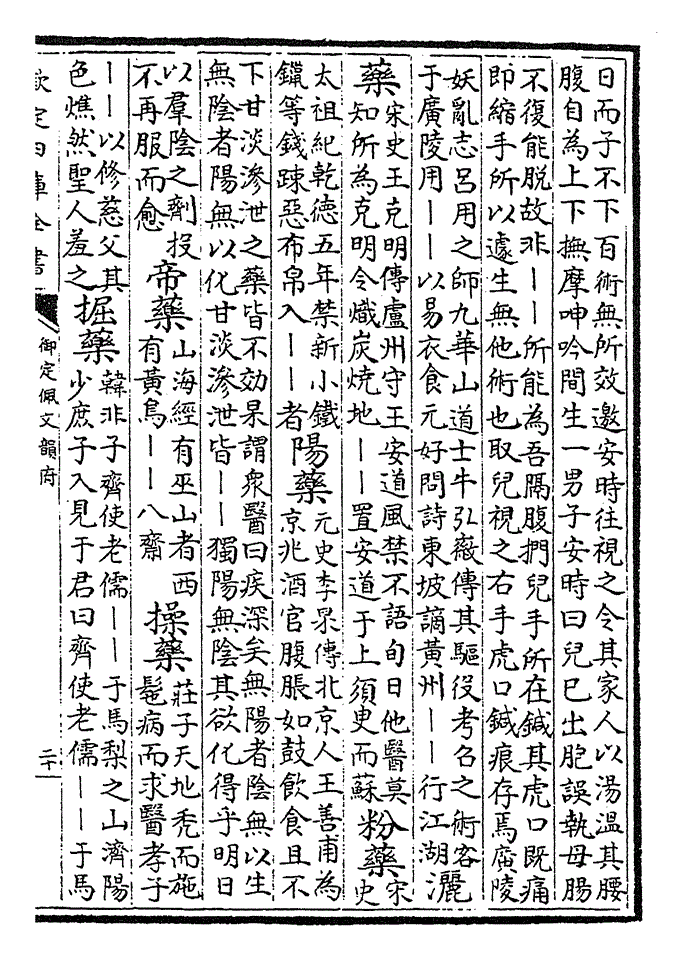 日而子不下百術無所效邀安時往視之令其家人以湯溫其腰
腹自為上下撫摩呻吟間生一男子安時曰兒已出胞誤執母腸
不復能脫故非——所能為吾隔腹捫兒手所在鍼其虎口既痛
即縮手所以遽生無他術也取兒視之右手虎口鍼痕存焉廣陵
妖亂志呂用之師九華山道士牛弘薇傳其驅役考召之術客
于廣陵用——以易衣食元好問詩東坡謫黃州——行江湖灑
藥宋史王克明傳盧州守王安道風禁不語旬日他醫莫
知所為克明令熾炭燒地——置安道于上須臾而蘇粉藥宋史
太祖紀乾德五年禁新小鐵
鑞等錢踈惡布帛入——者陽藥元史李杲傳北京人王善甫為
京兆酒官腹脹如鼓飲食且不
下甘淡滲泄之藥皆不効杲謂衆醫曰疾深矣無陽者陰無以生
無陰者陽無以化甘淡滲泄皆——獨陽無陰其欲化得乎明日
以羣陰之劑投
不再服而愈帝藥山海經有巫山者西
有黃鳥——八齋操藥莊子天地禿而施
髢病而求醫孝子
——以修慈父其
色燋然聖人羞之掘藥韓非子齊使老儒——于馬梨之山濟陽
少庶子入見于君曰齊使老儒——于馬
欽定四庫全書
御定佩文韻府
二十